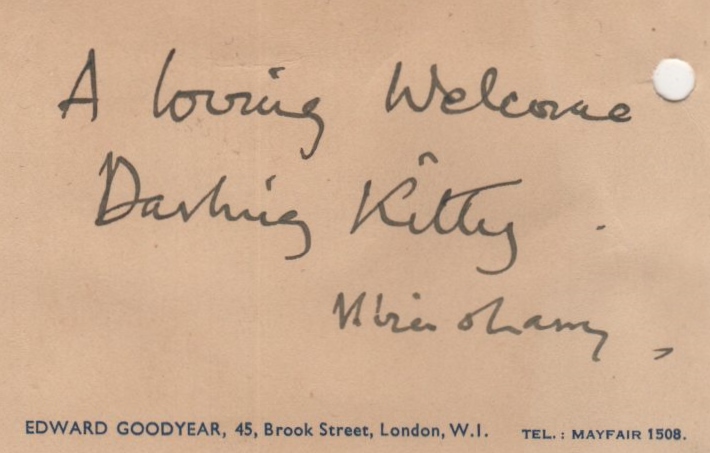 A loving Welcome
Darling Kitty .
EDWARD GOODYEAR, 45, Brook Street, London, W.1. TEL.: MAYFAIR 1508.